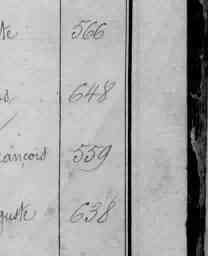 te 566
s 648
ançois 559
guste 638